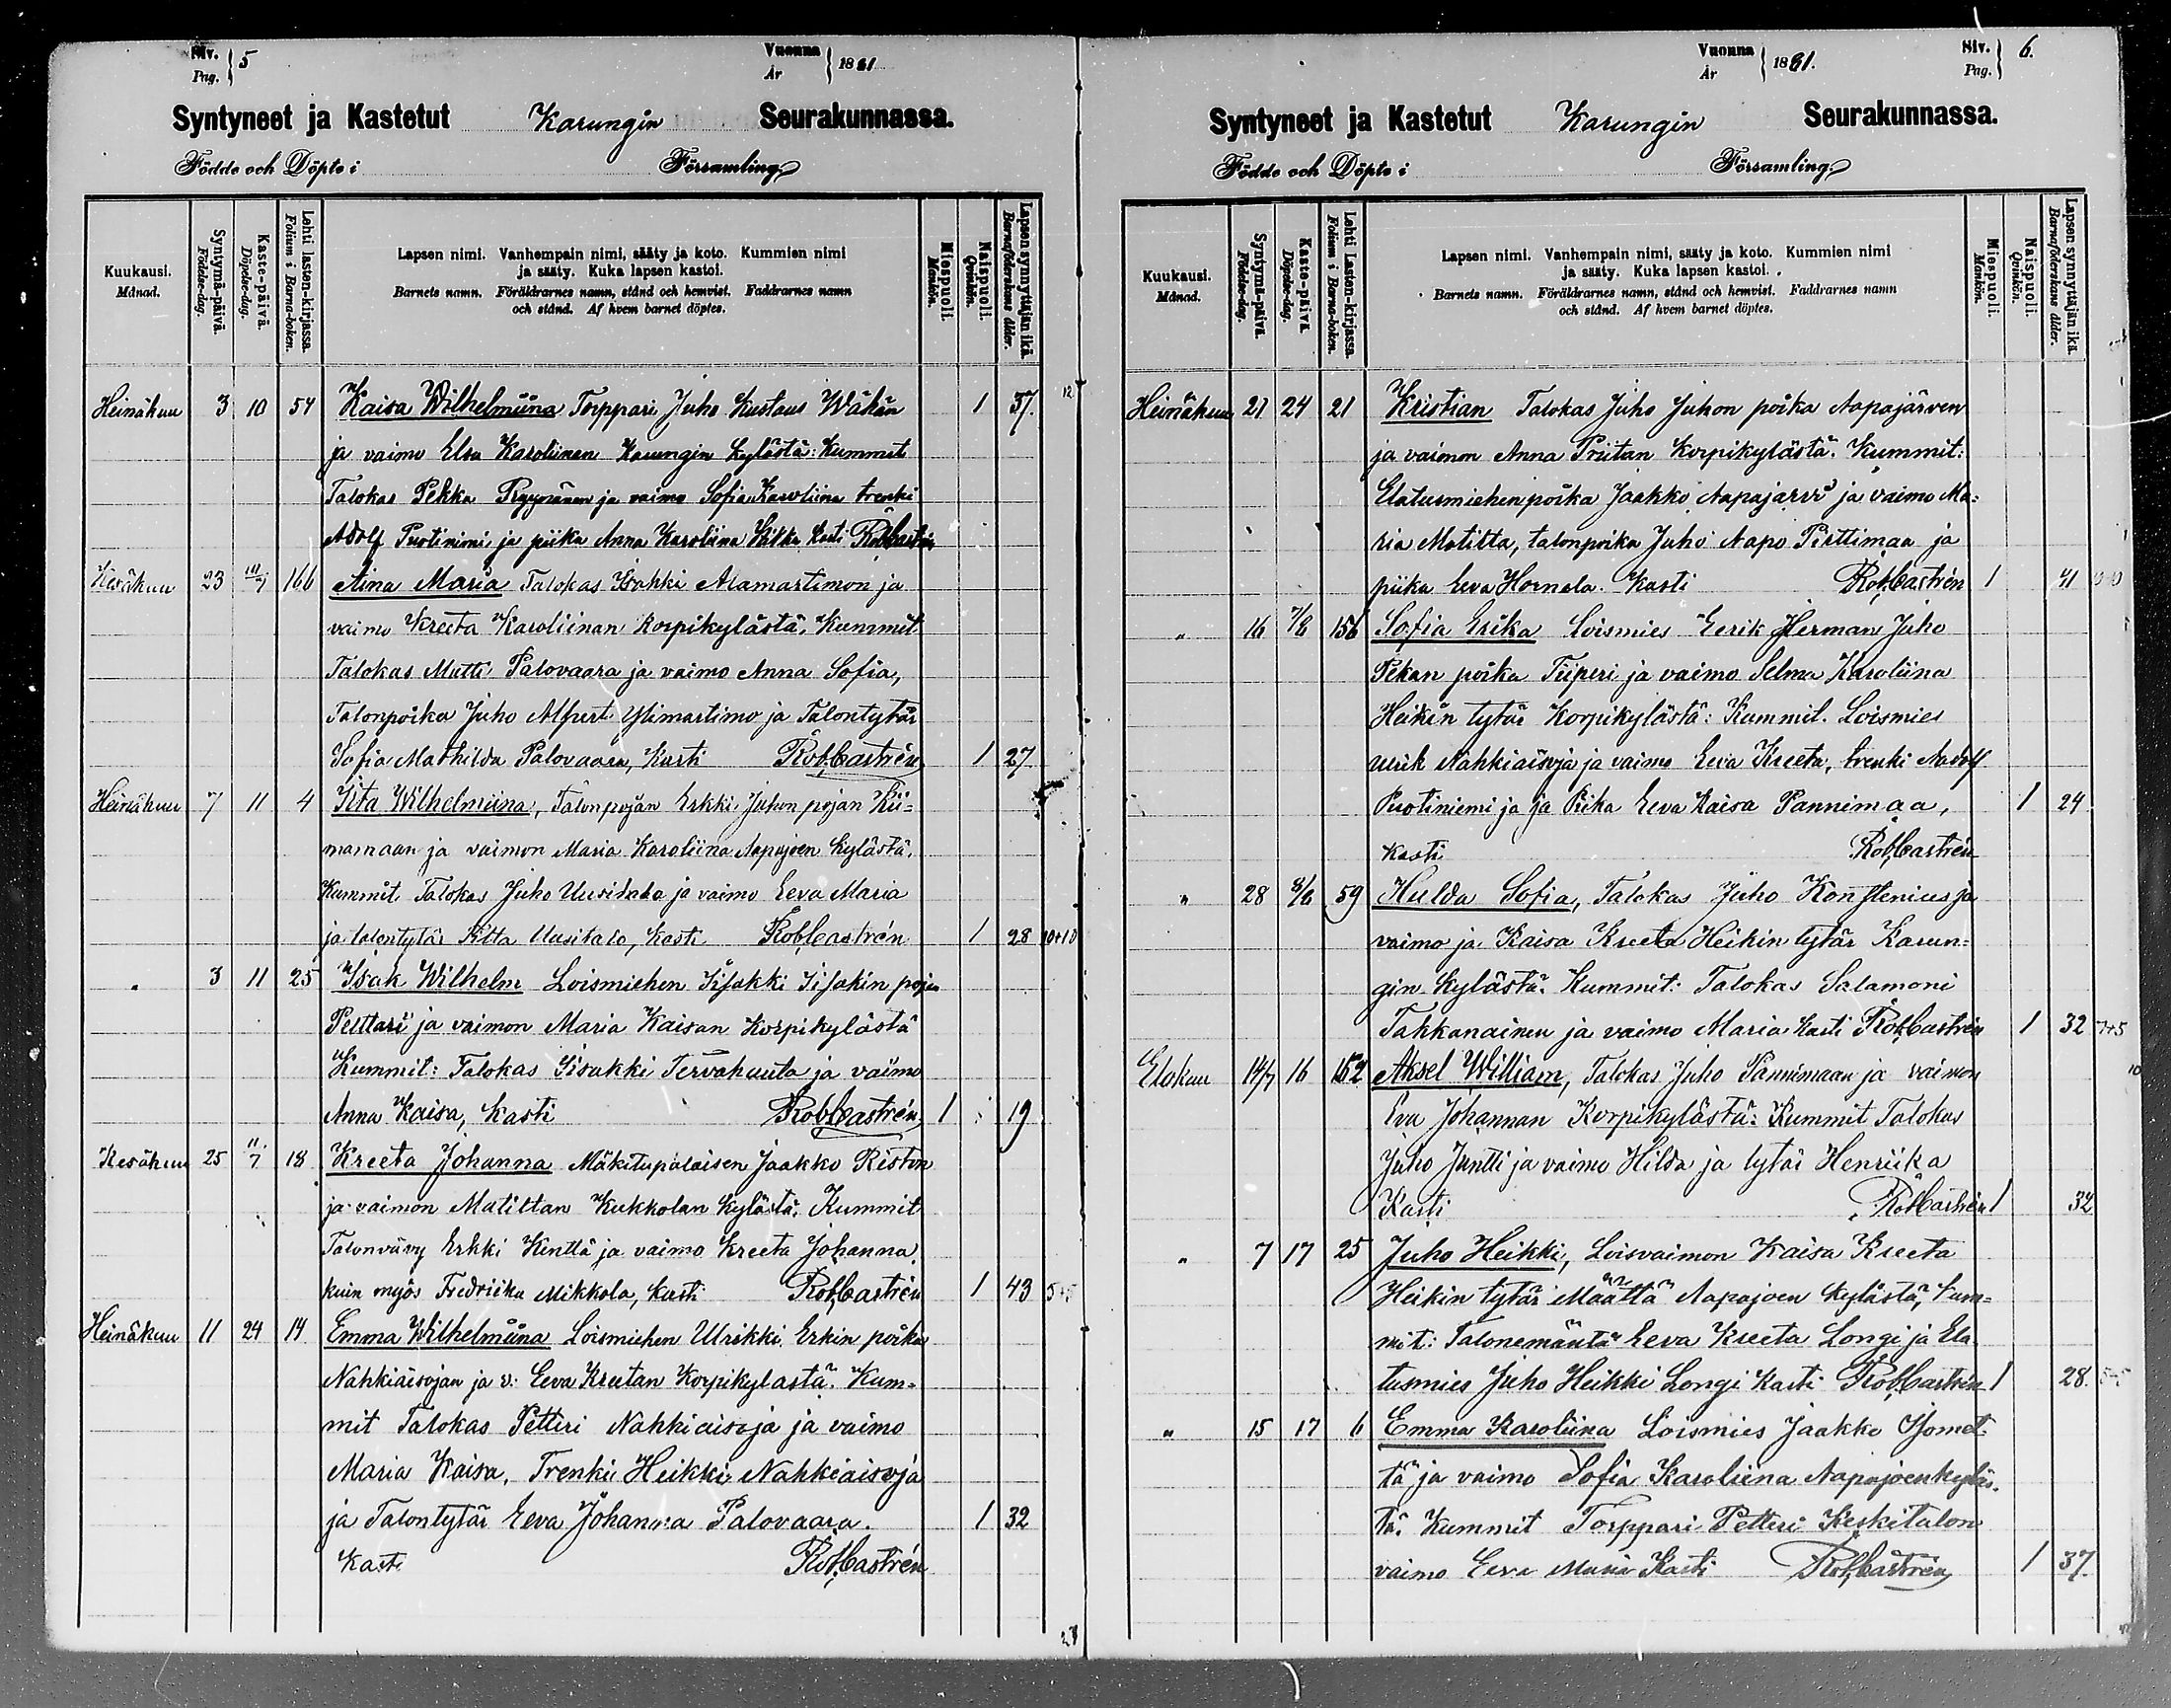 Siv. Pag. 5
Vuonna År 1881
Syntyneet ja Kastetut Karungin Seurakunnassa.
Födde och Döpte i Församling
Kuukausi. Månad.
Syntymä-päivä. Födelse-dag.
Kaste-päivä. Döpelse-dag.
Lehti lasten-kirjassa. Folium i Barna-boken.
Lapsen nimi. Vanhempain nimi, sääty ja koto. Kummien nimi
ja sääty. Kuka lapsen kastoi.
Barnets namn. Föräldrarnes namn, stånd och hemvist. Faddrarnes namn
och stånd. Af hvem barnet döptes.
Miespuoli. Mankön.
Naispuoli. Qvinkön.
Lapsen synnyttäjän ikä. Barnaföderskans ålder.
Heinäkuu 3 10 54 Kaisa Wilhelmiina Torppari Juho Kustaus Wähän 1 37.
ja vaimo Elsa Karoliinan Karungin kylästä: Kummit
Talokas Pekka ja vaimo Sofia Karoliina trenki
Adolf Puotiniemi ja piika Anna Karoliina Kasti Rob Castrén
Kesäkuu 23 10/7 166 Aina Maria Talokas Isahki Alamartimon ja
vaimo Kreeta Karoliinan Korpikylästä. Kummit
Talokas Matti Palovaara ja vaimo Anna Sofia,
Talonpoika Juho Alfert Ylimartimo ja Talontytär
Sofia Mathilda Palovaara, Kasti Rob Castrén 1 27
Heinäkuu 7 11 4 Iita Wilhelmiina, Talonpojan Erkki Juhon pojan Kii=
mamaan ja vaimon Maria Karoliina Aapajoen kylästä.
Kummit Talokas Juho Uusitalo ja vaimo Eeva Maria
ja talontytär Iitta Uusitalo, kasti Rob Castrén 1 28 10+10
" 3 11 25 Isak Wilhelm Loismiehen Iisakki Iisakin pojan
Pelttari ja vaimon Maria Kaisan Korpikylästä
Kummit: Talokas Iisakki Tervahauta ja vaimo
Anna Kaisa, kasti Rob Castrén 1 19
Kesäkuu 25 11/7 18 Kreeta Johanna Mäkitupalaisen Jaakko Riston
ja vaimon Matiltan Kukkolan kylästä. Kummit
Talonvävy Erkki Kenttä ja vaimo Kreeta Johanna
kuin myös Fredriika Mikkola, kasti Rob Castrén 1 43 5+5
Heinäkuu 11 24 14 Emma Wilhelmiina Loismiehen Ulrikki Erkin poika
Nahkiaisojan ja v: Eeva Kreetan Korpikylästä. Kum=
mit Talokas Petteri Nahkiaisoja ja vaimo
Maria Kaisa, Trenki Heikki Nahkiaisoja
ja Talontytär Eeva Johanna Palovaara. 1 32
Kasti Rob Castrén
Vuonna År 1881.
Siv. Pag. 6.
Syntyneet ja Kastetut Karungin Seurakunnassa.
Födde och Döpte i Församling
Kuukausi. Månad.
Syntymä-päivä. Födelse-dag.
Kaste-päivä. Döpelse-dag.
Lehti Lasten-kirjassa. Folium i Barna-boken.
Lapsen nimi. Vanhempain nimi, sääty ja koto. Kummien nimi
ja sääty. Kuka lapsen kastoi.
Barnets namn. Föräldrarnes namn, stånd och hemvist. Faddrarnes namn
och stånd. Af hvem barnet döptes.
Miespuoli. Mankön.
Naispuoli. Qvinkön.
Lapsen synnyttäjän ikä. Barnaföderskans ålder.
Heinäkuu 21 24 21 Kristian Talokas Juho Juhon poika Aapajärven
ja vaimon Anna Priitan Korpikylästä. Kummit:
Elatusmiehenpoika Jaakko Aapajärvi ja vaimo Ma=
ria Matilta, talonpoika Juho Aapo Perttimaa ja
piika Eeva Hornela. Kasti Rob Castrén 1 41
" 16 7/8 156 Sofia Erika Loismies Eerik Herman Juho
Pekan poika Tiiperi ja vaimo Selma Karoliina
Heikin tytär Korpikylästä: Kummit. Loismies
Ulrik Nahkiaisoja ja vaimo Eeva Kreeta, trenki Aadolf
Puotiniemi ja ja Piika Eeva Kaisa Pannimaa, 1 24
Kasti Rob Castrén
" 28 8/8 59 Hulda Sofia, Talokas Juho Konstenius ja
vaimo ja Kaisa Kreeta Heikin tytär Karun=
gin kylästä. Kummit: Talokas Salamoni
Takkanainen ja vaimo Maria kasti Rob Castrén 1 32 7+5
Elokuu 14/7 16 152 Aksel William, Talokas Juho Pannimaan ja vaimon
Eva Johannan Korpikylästä: Kummit Talokas
Juho Juntti ja vaimo Hilda ja tytär Henriika
Kasti Rob Castrén 1 32
" 7 17 25 Juho Heikki, Loisvaimon Kaisa Kreeta
Heikin tytär Määttä Aapajoen kylästä, kum=
mit: Talonemäntä Eeva Kreeta Longi ja Ela
tusmies Juho Heikki Longi kasti Rob Castrén 1 28.
" 15 17 6 Emma Karoliina Loismies Jaakko Ojomet=
tä ja vaimo Sofia Karoliina Aapajoenkyläs=
tä. Kummit Torppari Petteri Keskitalon
vaimo Eeva Maria Kasti Rob Castrén 1 37.